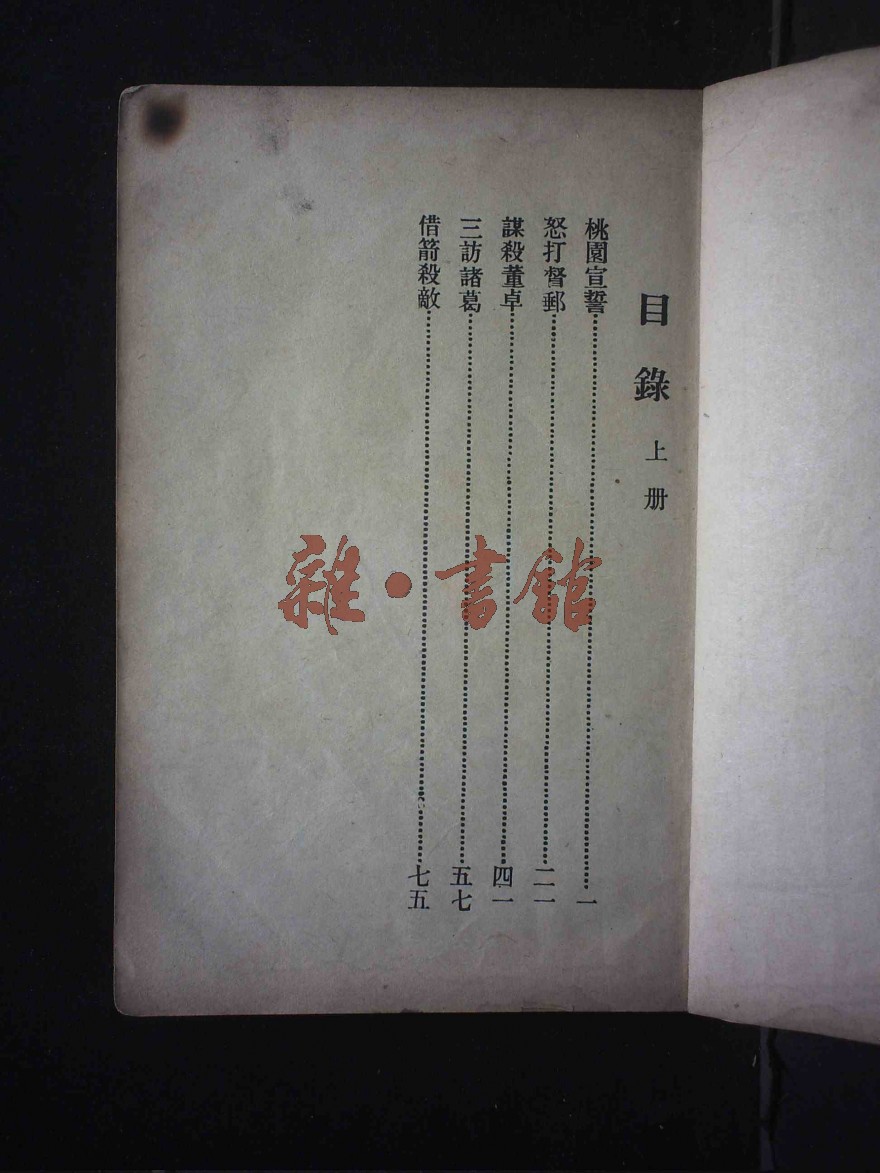 目錄 上册
桃園宣誓……一
怒打督郵……二一
謀殺董卓……四一
三訪諸葛……五七
借箭殺敵……七五
雜·書館